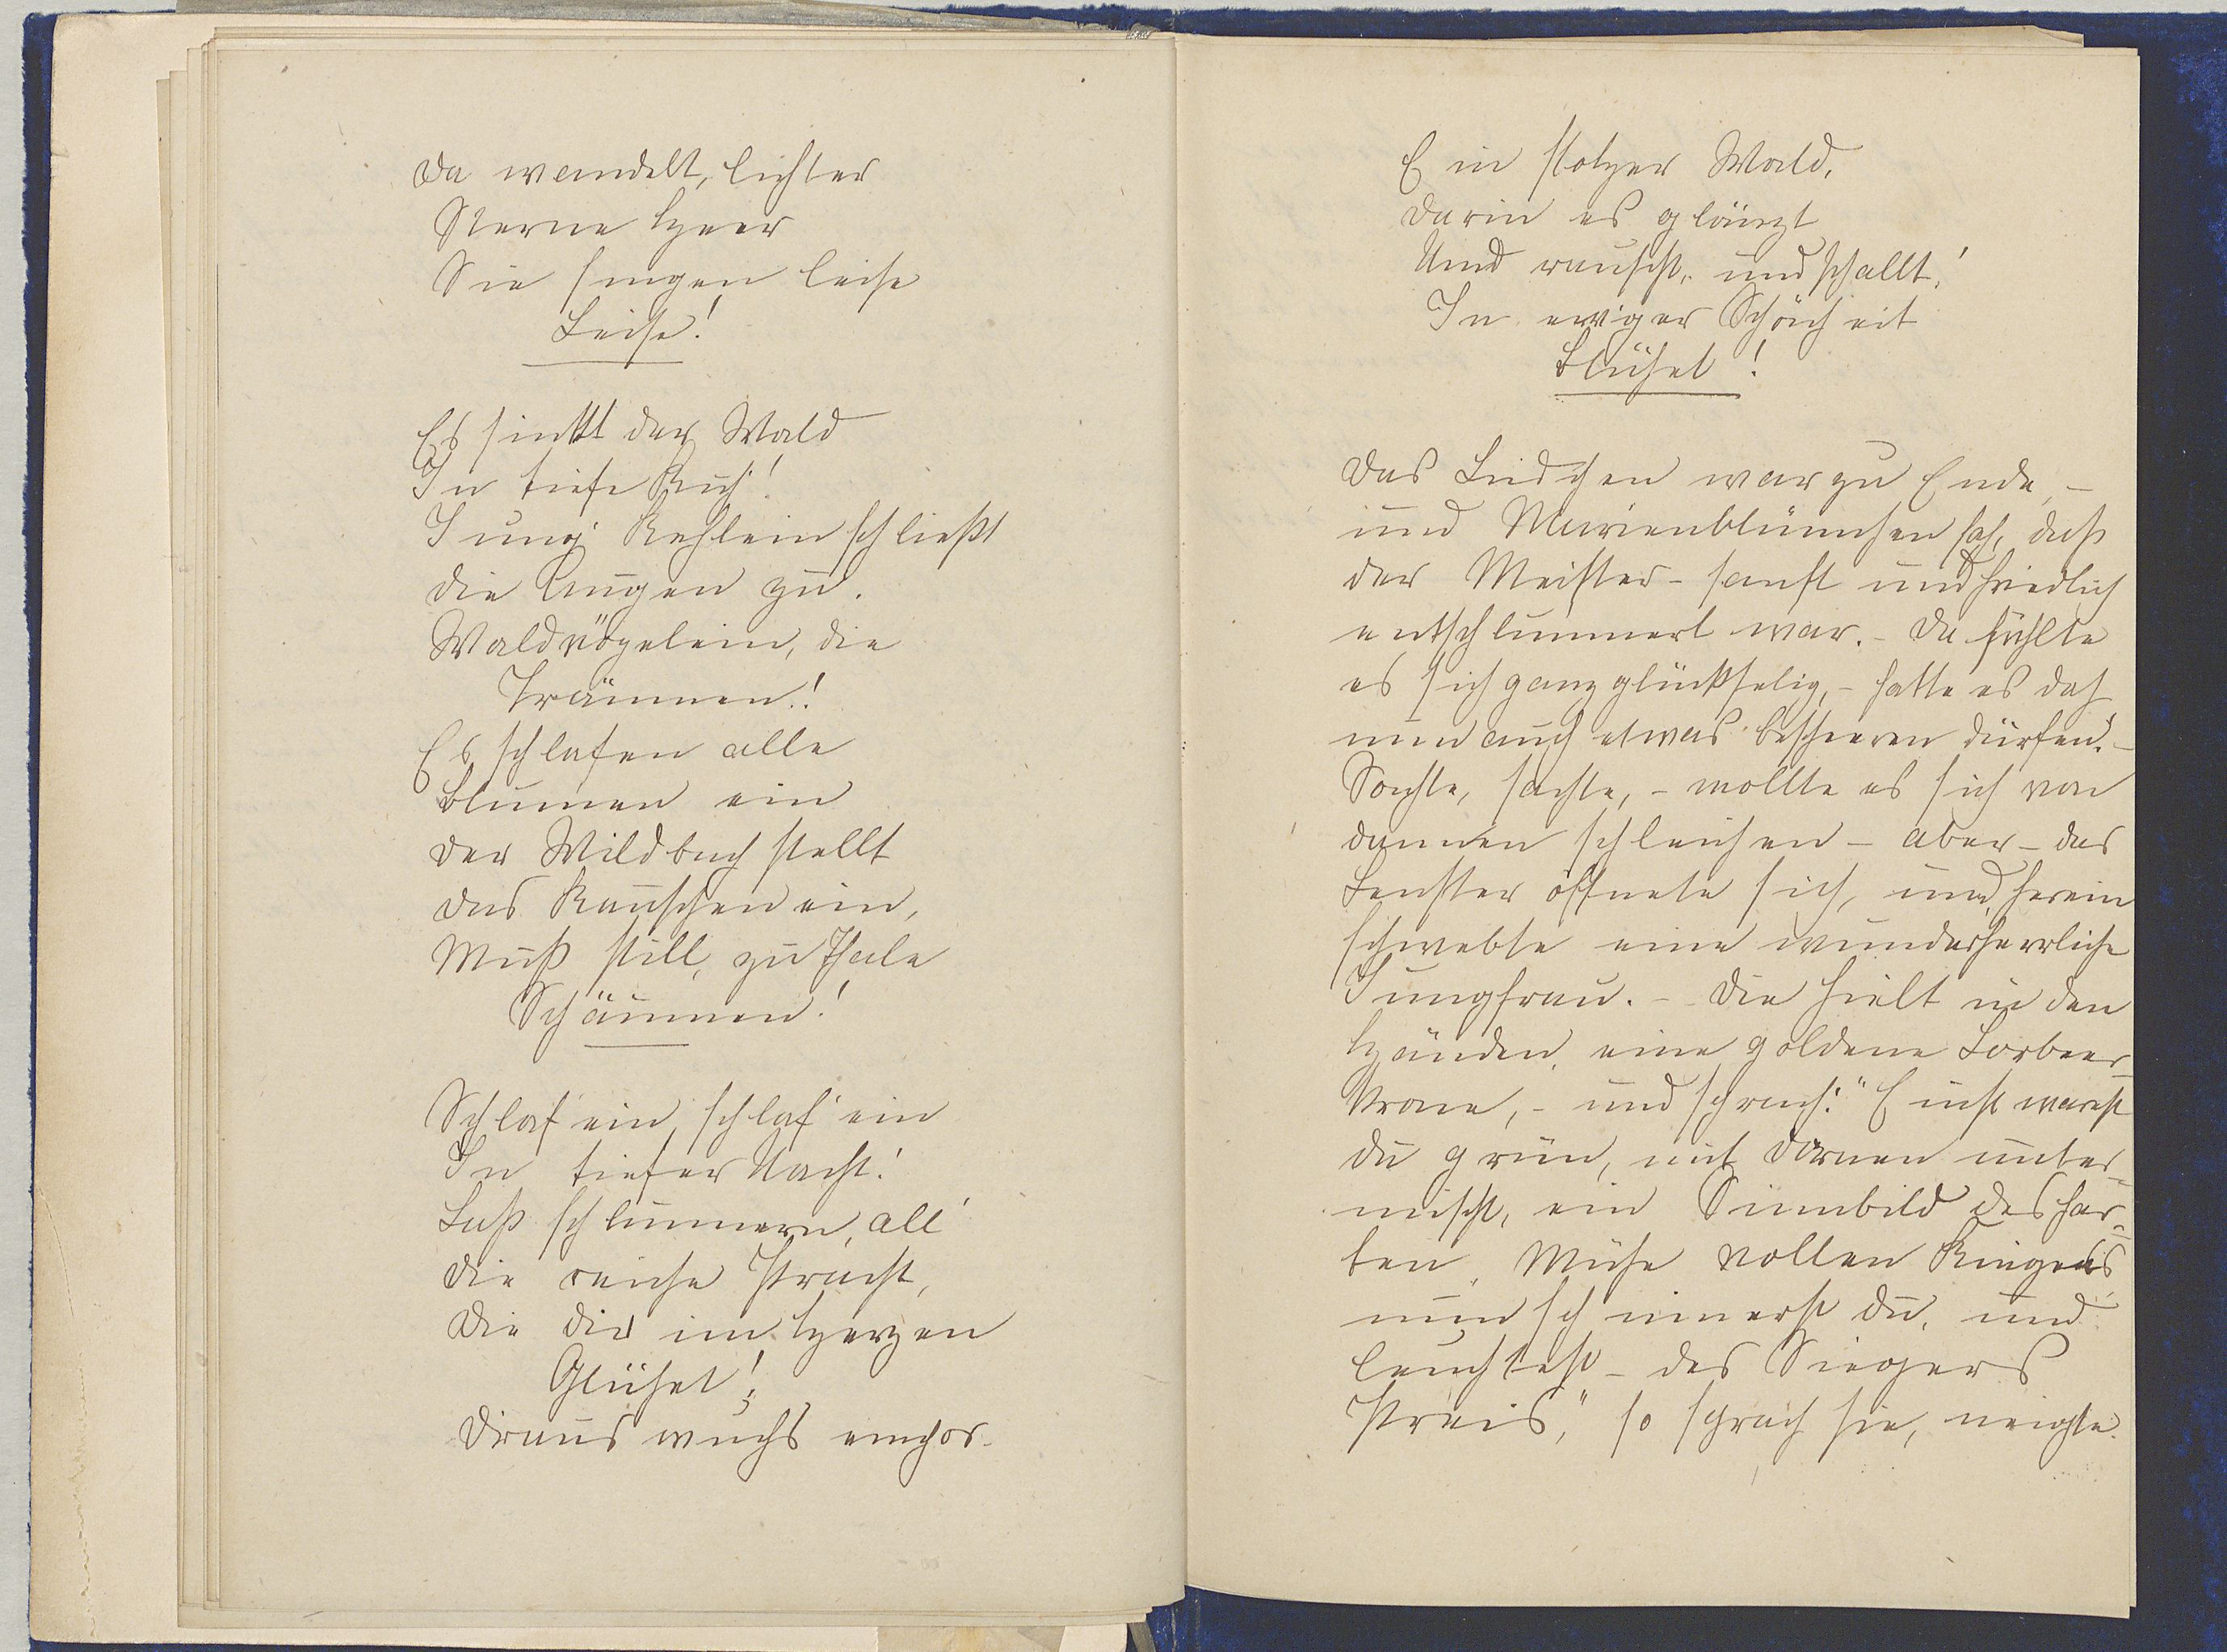 Da wandelt, lichter
Sterne Heer
Sie singen leise
Leise!
Es sinkt der Wald
In tiefe Ruh'!
Jung' Rehlein schließt
die Augen zu.
Waldvögelein, die
Träumen!
Es schlafen alle
Blumen ein
der Wildbach stellt
das Rauschen ein,
Muß still, zu Thale
Schäumen!
Schlaf' ein, schlaf' ein
In tiefer Nacht!
Laß schlummern, all'
die reiche Pracht,
Die dir im Herzen
Glühet!;
Draus wuchs empor
Ein stolzer Wald,
darin es glänzt
Und rauscht, und schallt,!
In ewiger Schönheit
Blühet!
Das Liedchen war zu Ende, –
und Marienblümchen sah, daß
der Meister – sanft und friedlich
entschlummert war. – Da fühlte
es sich ganz glückselig, – hatte es doch
nun auch etwas bescheeren dürfen. –
Sachte, sachte, – wollte es sich von
dannen schleichen – aber – das
Fenster öffnete sich, und herein
schwebte eine wunderherrliche
Jungfrau. – Die hielt in den
Händen, eine goldene Lorbeer-
krone, – und sprach: "Einst warst
du grün, mit Dornen unter-
mischt, ein Sinnbild des har-
ten, Mühe vollen Ringens
nun schimmerst du, und
leuchtest – des Siegers
Preis," so sprach sie, neigte